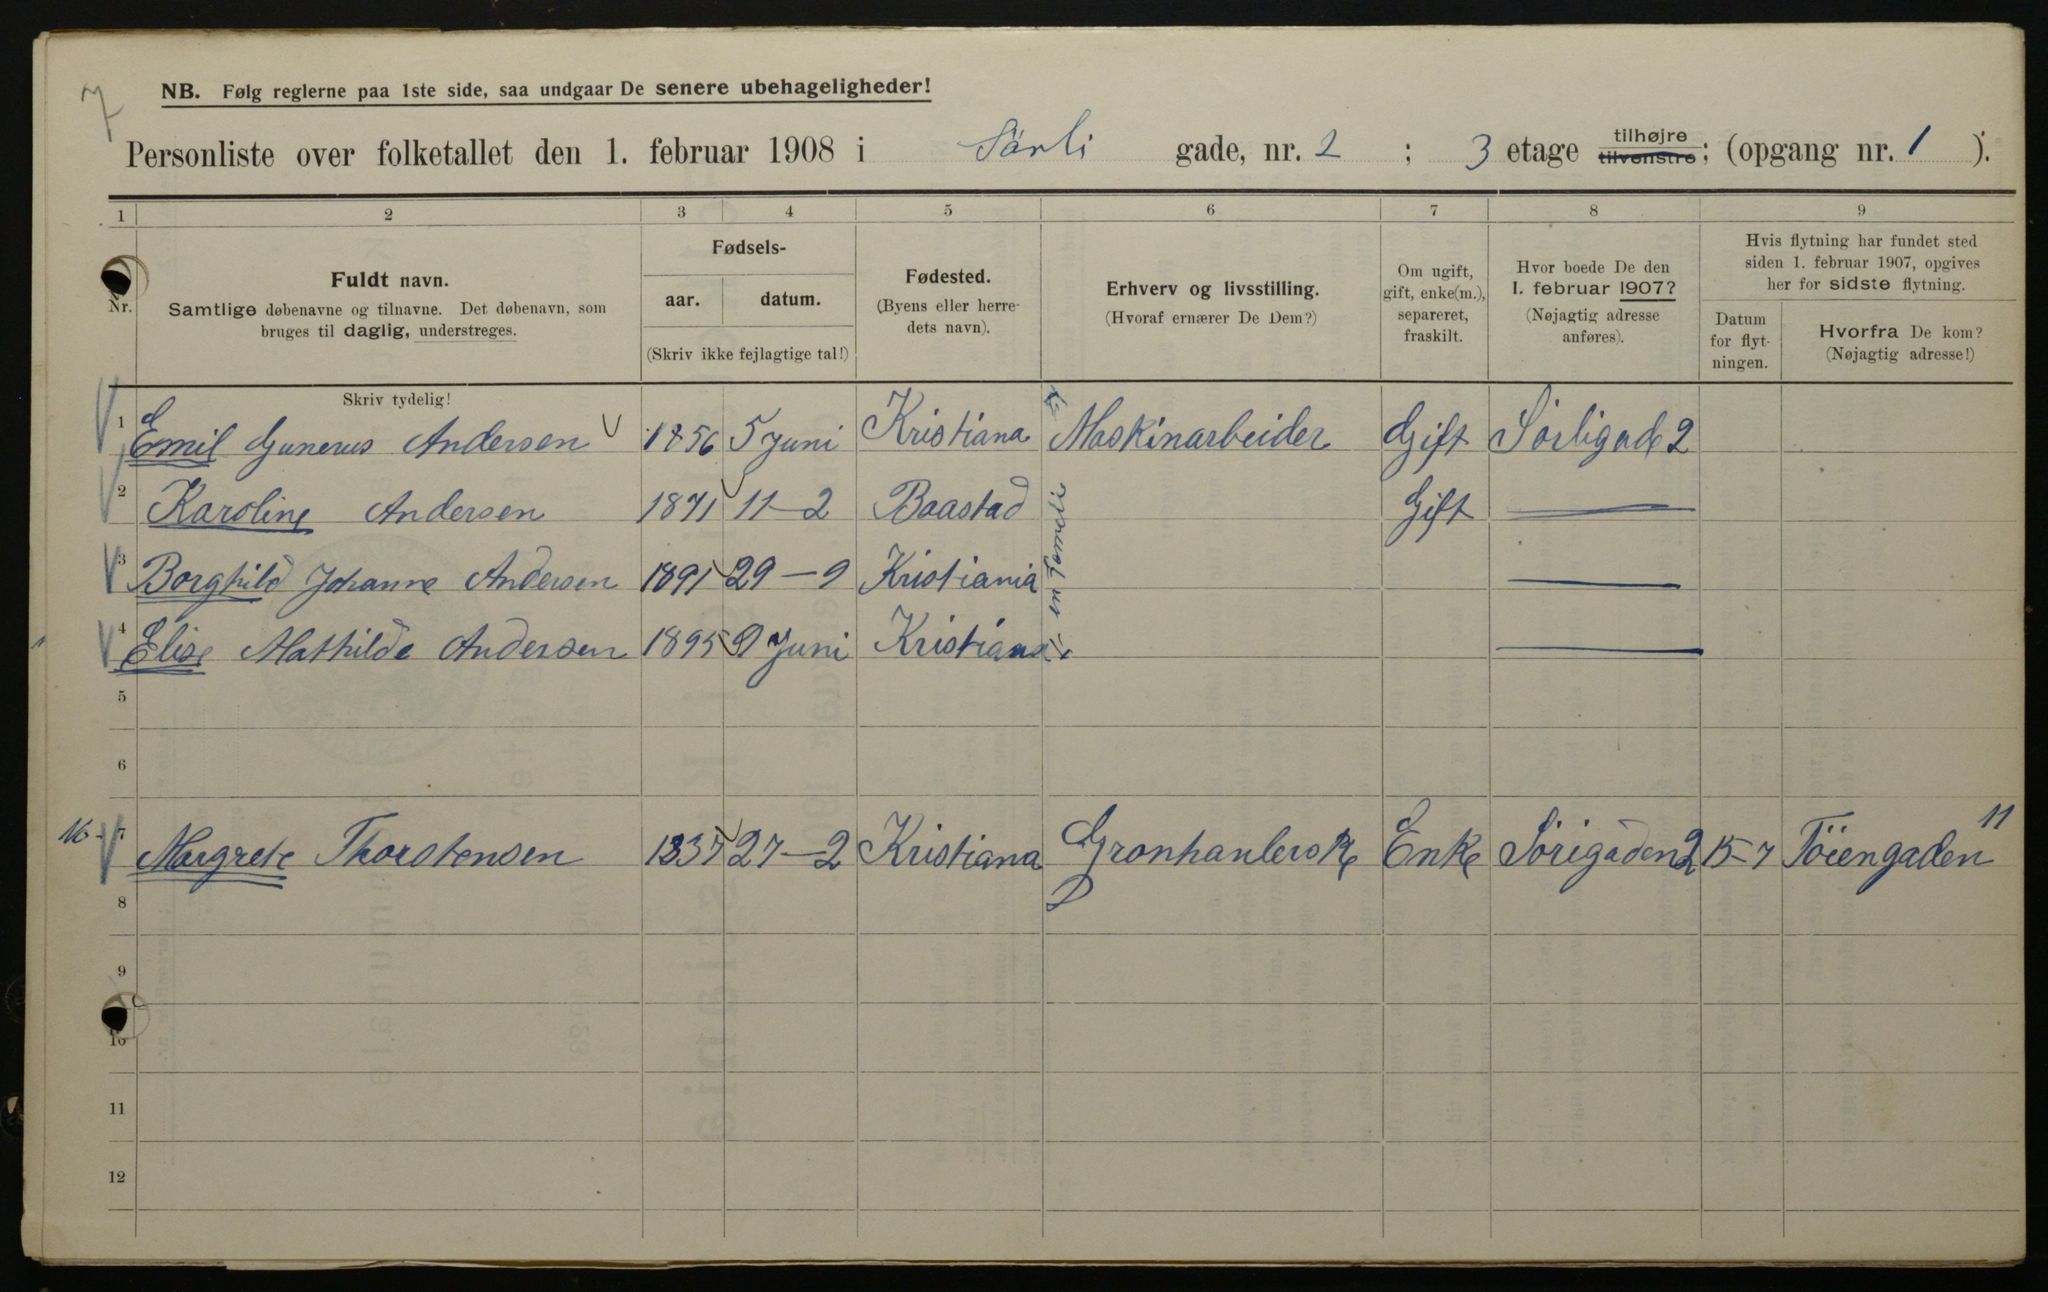 7
NB. Følg reglerne paa 1ste side, saa undgaar De senere ubehageligheder!
Personliste over folketallet den 1. februar 1908 i Sörli gade, nr. 2 ; 3 etage tilhøjre tilvenstre; (opgang nr. 1 ).
1 2 3 4 5 6 7 8 9
Nr.
Fuldt navn.
Samtlige døbenavne og tilnavne. Det døbenavn, som
bruges til daglig, understreges.
Fødsels-
aar. datum.
(Skriv ikke fejlagtige tal!)
Fødested.
(Byens eller herre-
dets navn).
Erhverv og livsstilling.
(Hvoraf ernærer De Dem?)
Om ugift,
gift, enke(m.),
separeret,
fraskilt.
Hvor boede De den
1. februar 1907?
(Nøjagtig adresse
anføres).
Hvis flytning har fundet sted
siden 1. februar 1907, opgives
her for sidste flytning.
Datum
for flyt-
ningen.
Hvorfra De kom?
(Nøjagtig adresse!)
Skriv tydelig!
1 Emil Gunerus Andersen 1856 5 Juni Kristiana Maskinarbeider Gift Sörligade 2
2 Karoline Andersen 1871 11-2 Baastad Gift
3 Borghild Johanne Andersen 1891 29-9 Kristiania
4 Elise Mathilde Andersen 1895 9 Juni Kristiana
5
6
7 Margrete Thorstensen 1837 27-2 Kristiana Gronhanlerske Enke Sörigaden 2 15-7 Töiengaden 11
8
9
10
11
12